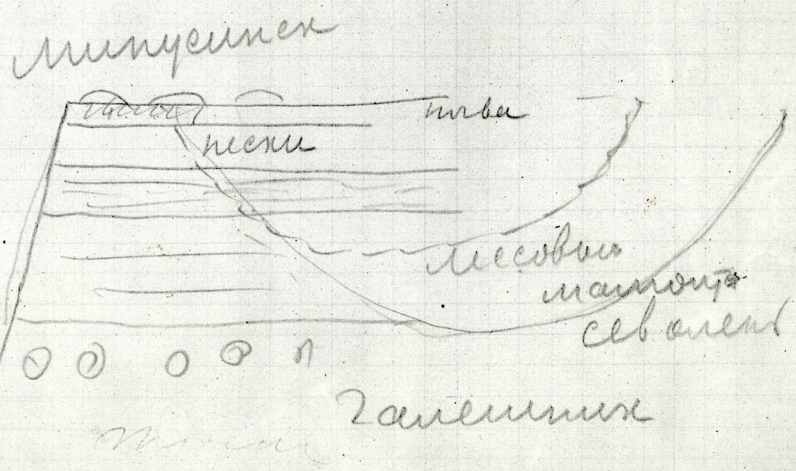 Минусинск
почва
пески
лесовый
мамонт
сев олень
Галечник